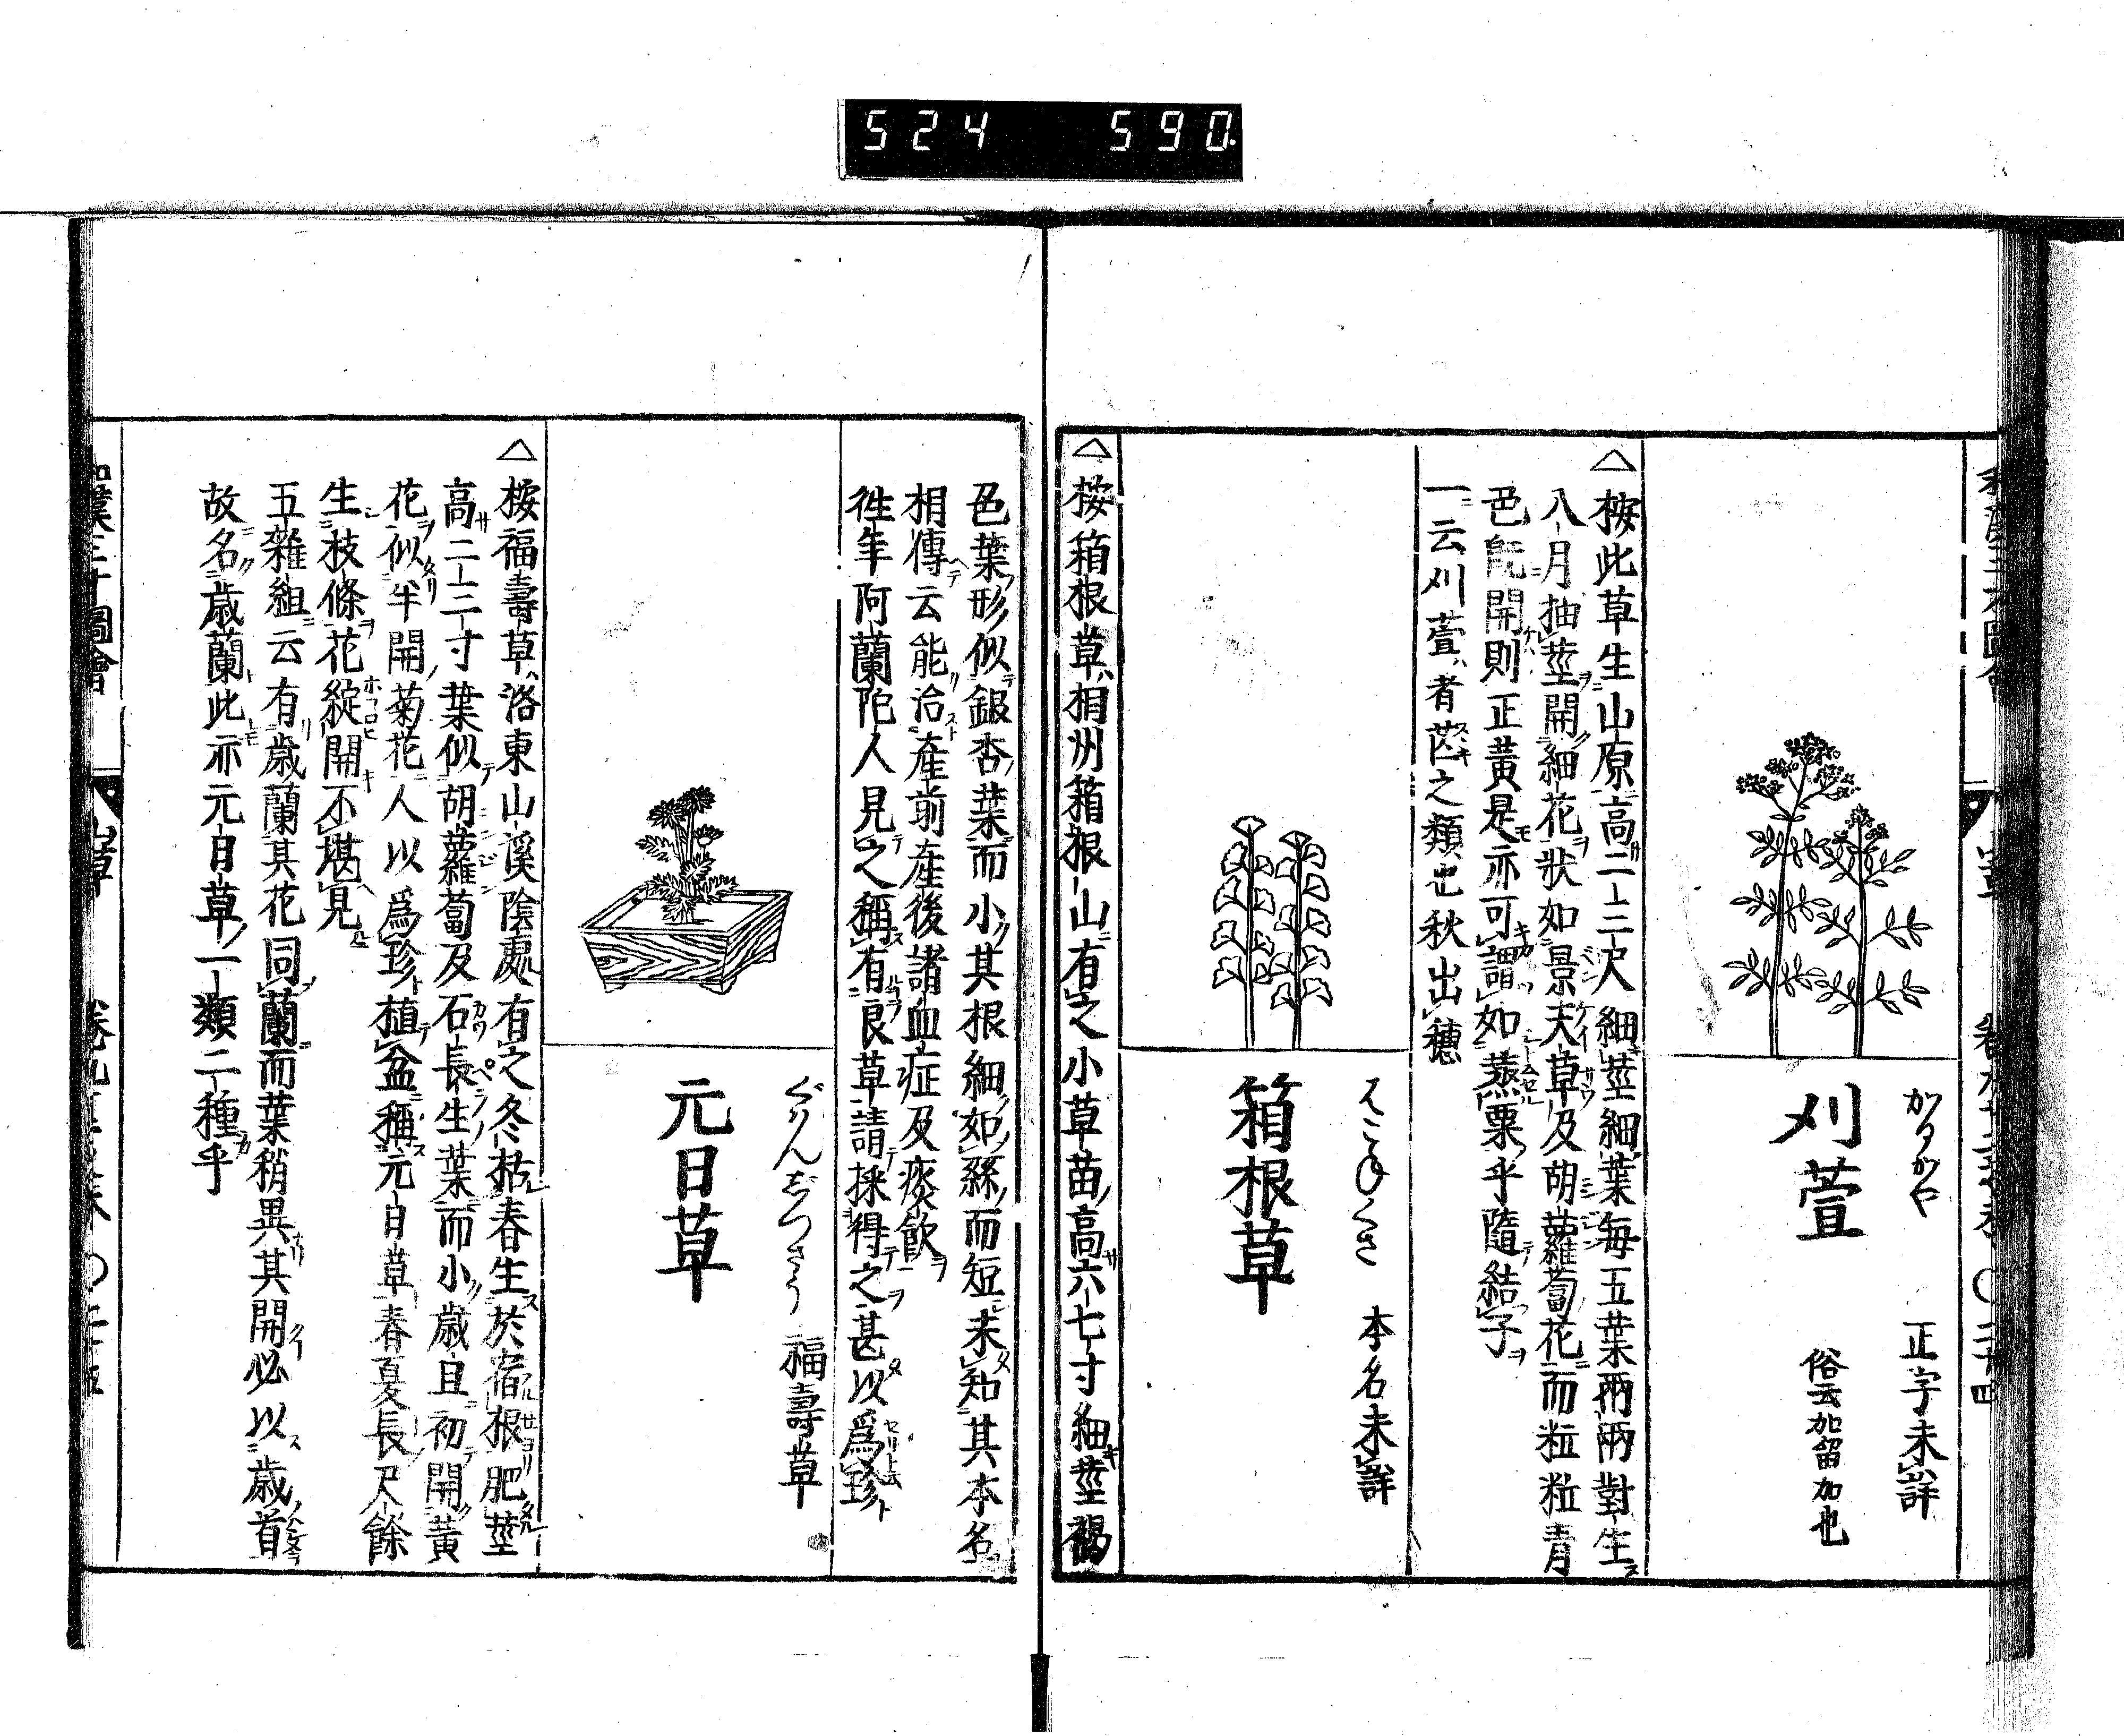 524 590
かるかや 正字未詳
刈萱
俗云加留加也
△按此草生山原高二三尺細莖細葉毎五葉兩兩對生
八月抽莖開細花狀如景天草及胡蘿蔔花而粒粒青
色既開則正黃是亦可謂如蒸粟乎隨結子
一云刈萱者芒之類也秋出穗
はこねくさ 本名未詳
箱根草
△按箱根草相州箱根山有之小草苗高六七寸細莖褐
色葉形似銀杏葉而小其根細如絲而短未知其本名
相傳云能治產前產後諸血症及痰飮
徃年阿蘭陀人見之稱有良草請採得之甚以爲珍
ぐはんじつさう 福壽草
元日草
△按福壽草洛東山溪陰處有之冬枯春生於宿根肥莖
高二三寸葉似胡蘿蔔及石長生葉而小歲且初開黃
花似半開菊花人以爲珍植盆稱元日草春夏長尺餘
生枝條花綻開不堪見
五雜組云有歲蘭其花同蘭而葉稍異其開必以歲首
故名歲蘭此亦元日草一類二種乎
山草